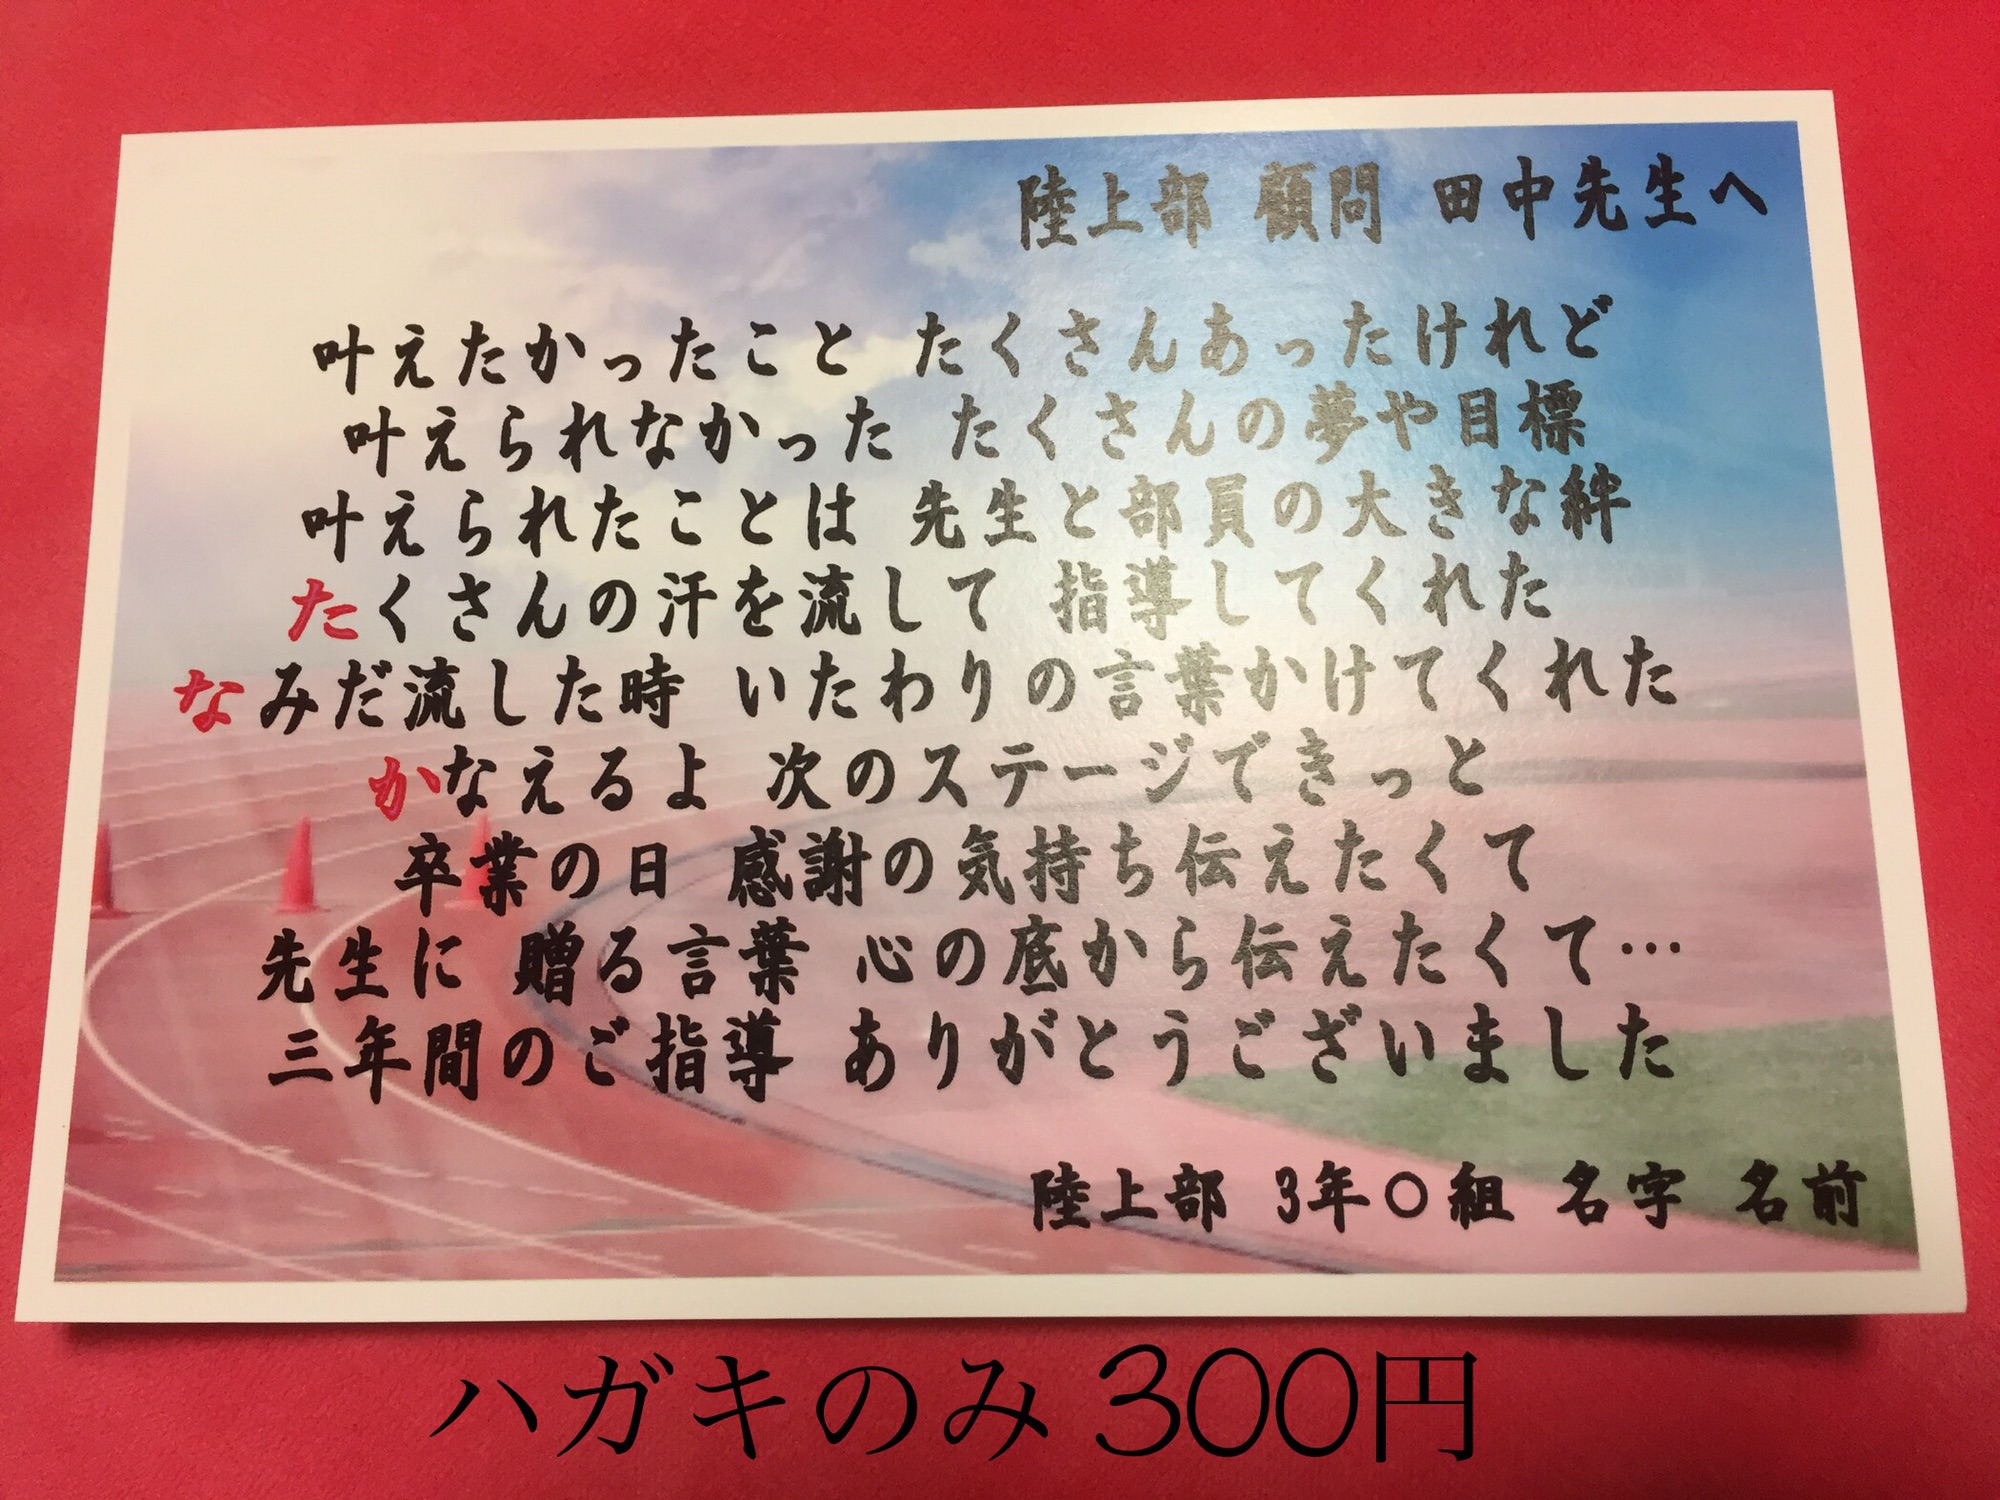 陸上部 顧問 田中先生へ
叶えたかったこと たくさんあったけれど
叶えられなかった たくさんの夢や目標
叶えられたことは 先生と部員の大きな絆
たくさんの汗を流して 指導してくれた
なみだ流した時 いたわりの言葉かけてくれた
かなえるよ 次のステージできっと
卒業の日 感謝の気持ち伝えたくて
先生に 贈る言葉 心の底から伝えたくて…
三年間のご指導 ありがとうございました
陸上部 3年〇組 名字 名前
ハガキのみ 300円